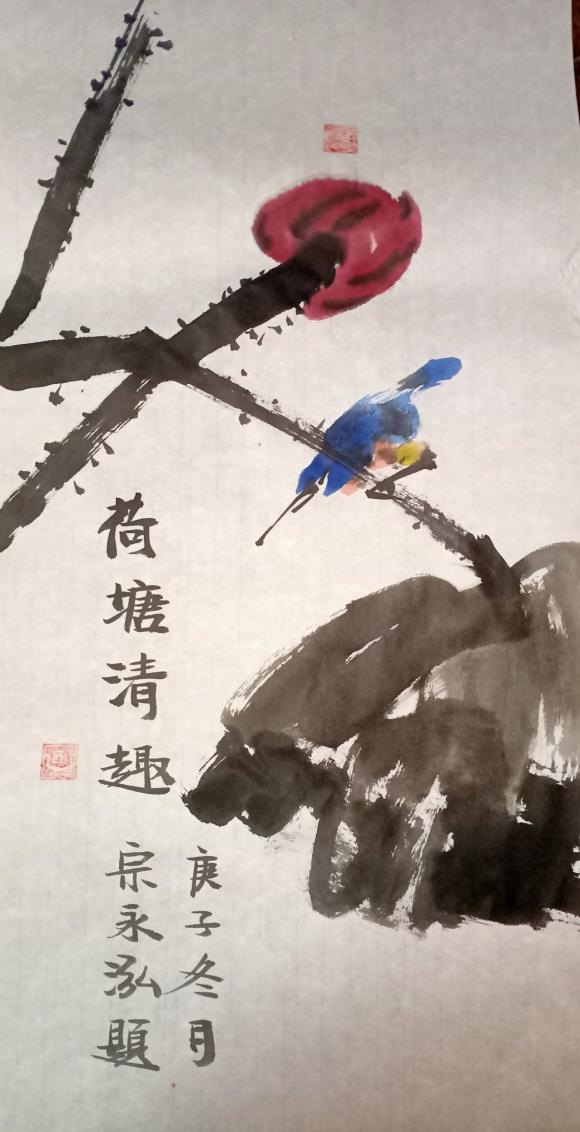 荷塘清趣
庚子冬月
宗永泓题